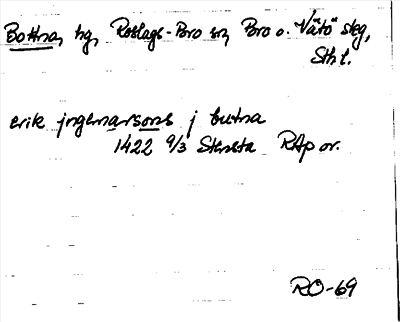 Bottna, hg, Roslags-Bro sn, Bro o. Vätö skg,
Sthl.
erik jngemarsons j butna
1422 9/3 Stensta RAp or.
RO-69